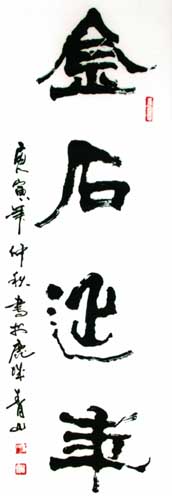 金石延年
庚寅年仲秋書於鹿城青山